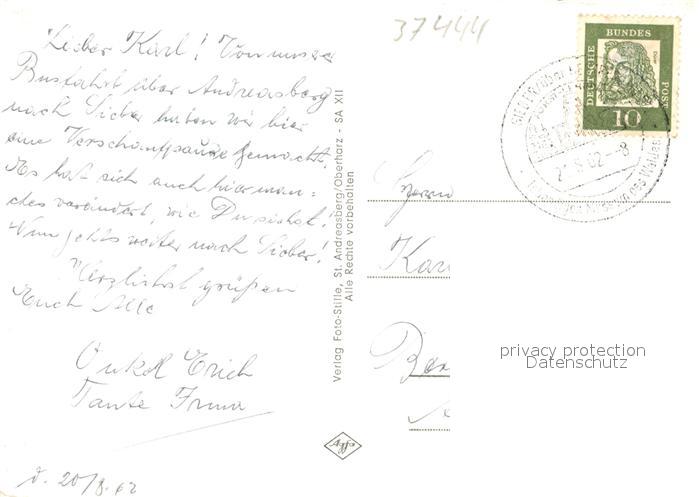 37444
Lieber Karl! Von unserer
Busfahrt über Andreasberg
nach Sieber haben wir hier
eine Verschnaufpause gemacht.
Es hat sich auch hier man=
ches verändert, wie Du siehst!
Nun geht's weiter nach Sieber!
Herzlichst grüßen
Euch Alle
Onkel Erich
Tante Irma
d. 20/8.62
Verlag Foto-Stille, St. Andreasberg/Oberharz - SA XII
Alle Rechte vorbehalten
Agfa
DEUTSCHE
BUNDES
POST
Dürer
10
62-8
Herrn
Kar
privacy protection
Datenschutz